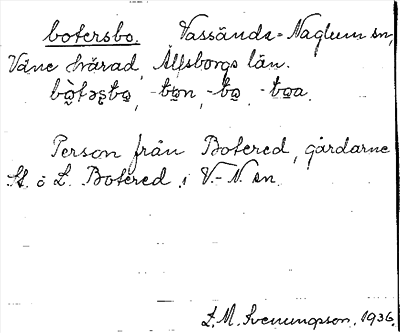 botersbo. Vassända-Naglum sn,
Väne härad, Älfsborgs län.
bò̤təʂbo̤, -bo̤n, -bo̤, -bo̤a.
Person från Botered, gårdarne
St. o L. Botered i V.-N. sn.
L. M. Svenungsson, 1936.